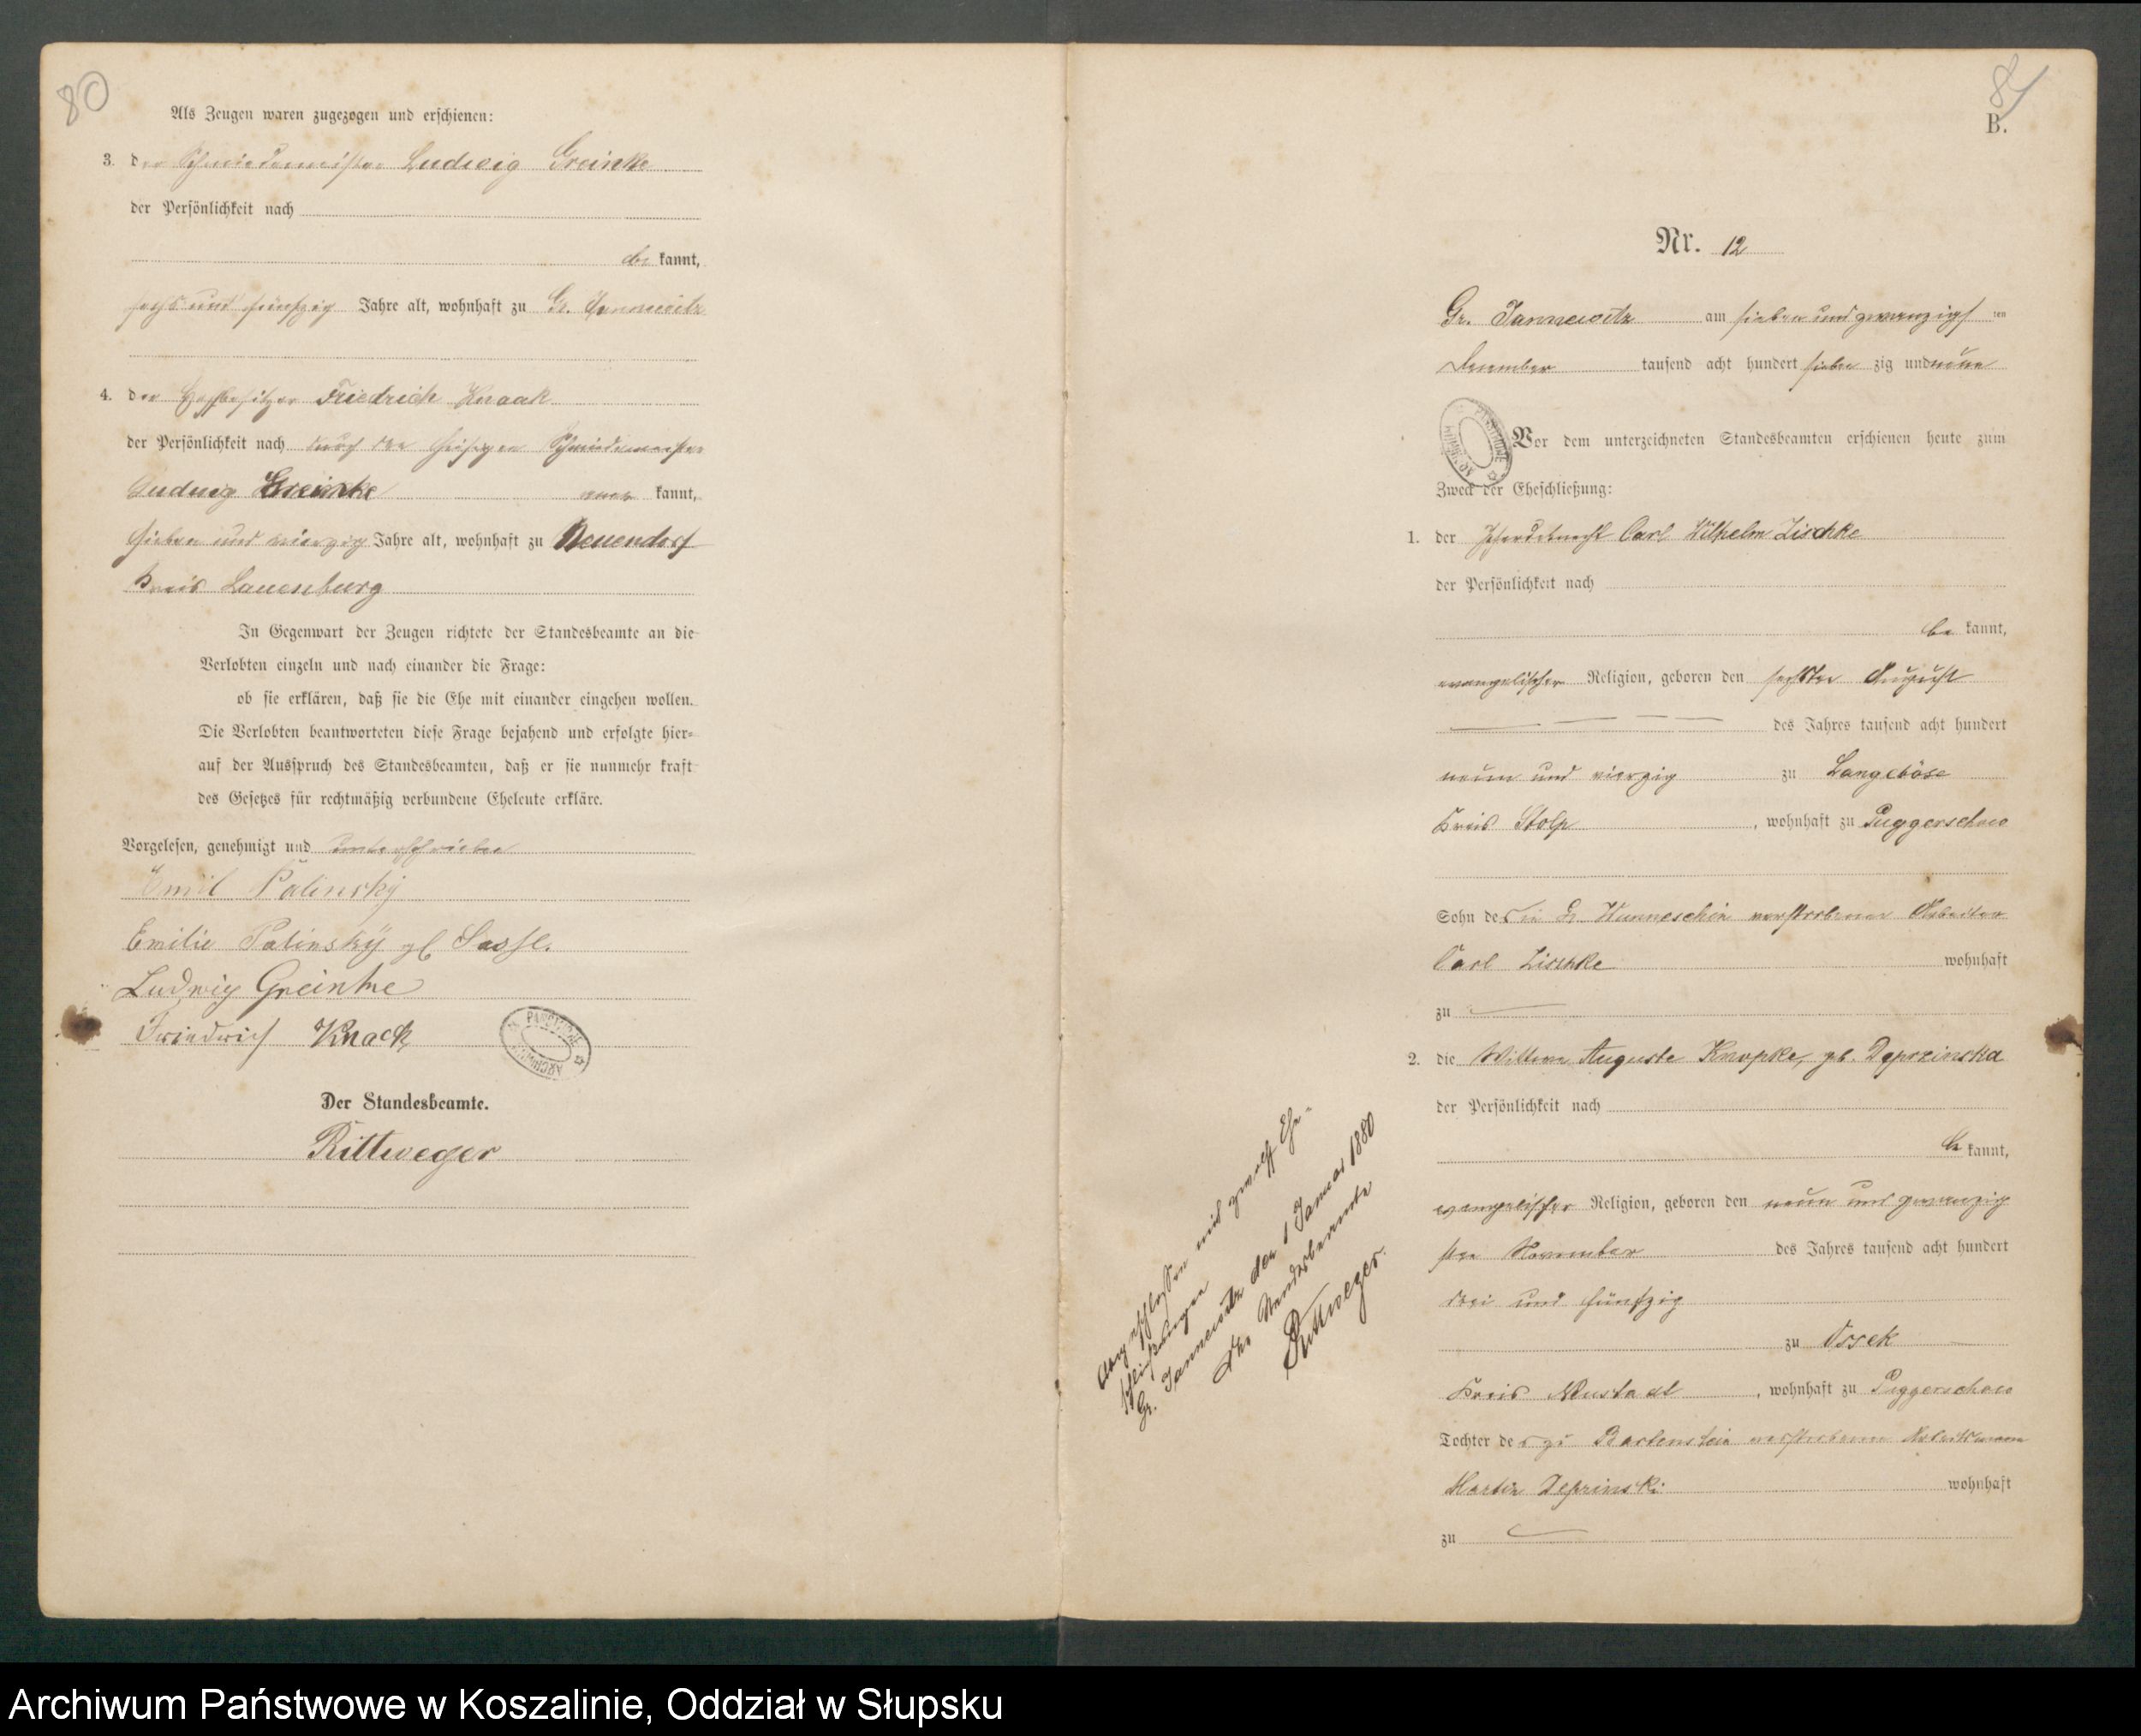 80
Als Zeugen waren zugezogen und erschienen:
3. der Schmiedemeister Ludwig Greinke
der Persönlichkeit nach
be kannt,
sechs und fünfzig Jahre alt, wohnhaft zu Gr. Jannewitz
4. der Hofbesitzer Friedrich Knaak
der Persönlichkeit nach durch den hiesigen Schmiedemeister
Ludwig Greinke aner kannt,
sieben und vierzig Jahre alt, wohnhaft zu Neuendorf
Kreis Lauenburg
In Gegenwart der Zeugen richtete der Standesbeamte an die
Verlobten einzeln und nach einander die Frage:
ob sie erklären, daß sie die Ehe mit einander eingehen wollen.
Die Verlobten beantworteten diese Frage bejahend und erfolgte hier-
auf der Ausspruch des Standesbeamten, daß er sie nunmehr kraft
des Gesetzes für rechtmäßig verbundene Eheleute erkläre.
Vorgelesen, genehmigt und unterschrieben
Emil Palinsky
Emilie Palinsky gb Sasse.
Ludwig Greinke
Friedrich Knack
Der Standesbeamte.
Rittweger
81
B.
Nr. 12
Gr. Jannewitz am sieben und zwanzigs ten
Dezember tausend acht hundert sieben zig und neun
Vor dem unterzeichneten Standesbeamten erschienen heute zum
Zweck der Eheschließung:
1. der Pferdeknecht Carl Wilhelm Zischke
der Persönlichkeit nach
be kannt,
evangelischer Religion, geboren den sechsten August
des Jahres tausend acht hundert
neun und vierzig zu Langeböse
Kreis Stolp, wohnhaft zu Puggerschow
Sohn des in Gr Wunneschin verstorbenen Arbeiter
Carl Zischke wohnhaft
zu
2. die Wittwe Auguste Knopke, gb. Deprzinska
der Persönlichkeit nach
be kannt,
evangelischer Religion, geboren den neun und zwanzig
sten November des Jahres tausend acht hundert
drei und fünfzig
zu Ossek
Kreis Neustadt, wohnhaft zu Puggerschow
Tochter des zu Bartenstein verstorbenen
Martin Deprinski wohnhaft
zu
Abgeschlossen mit zwölf Ehe-
schließungen
Gr. Jannewitz den 1 Januar 1880
Der Standesbeamte
Rittweger.
Archiwum Państwowe w Koszalinie, Oddział w Słupsku